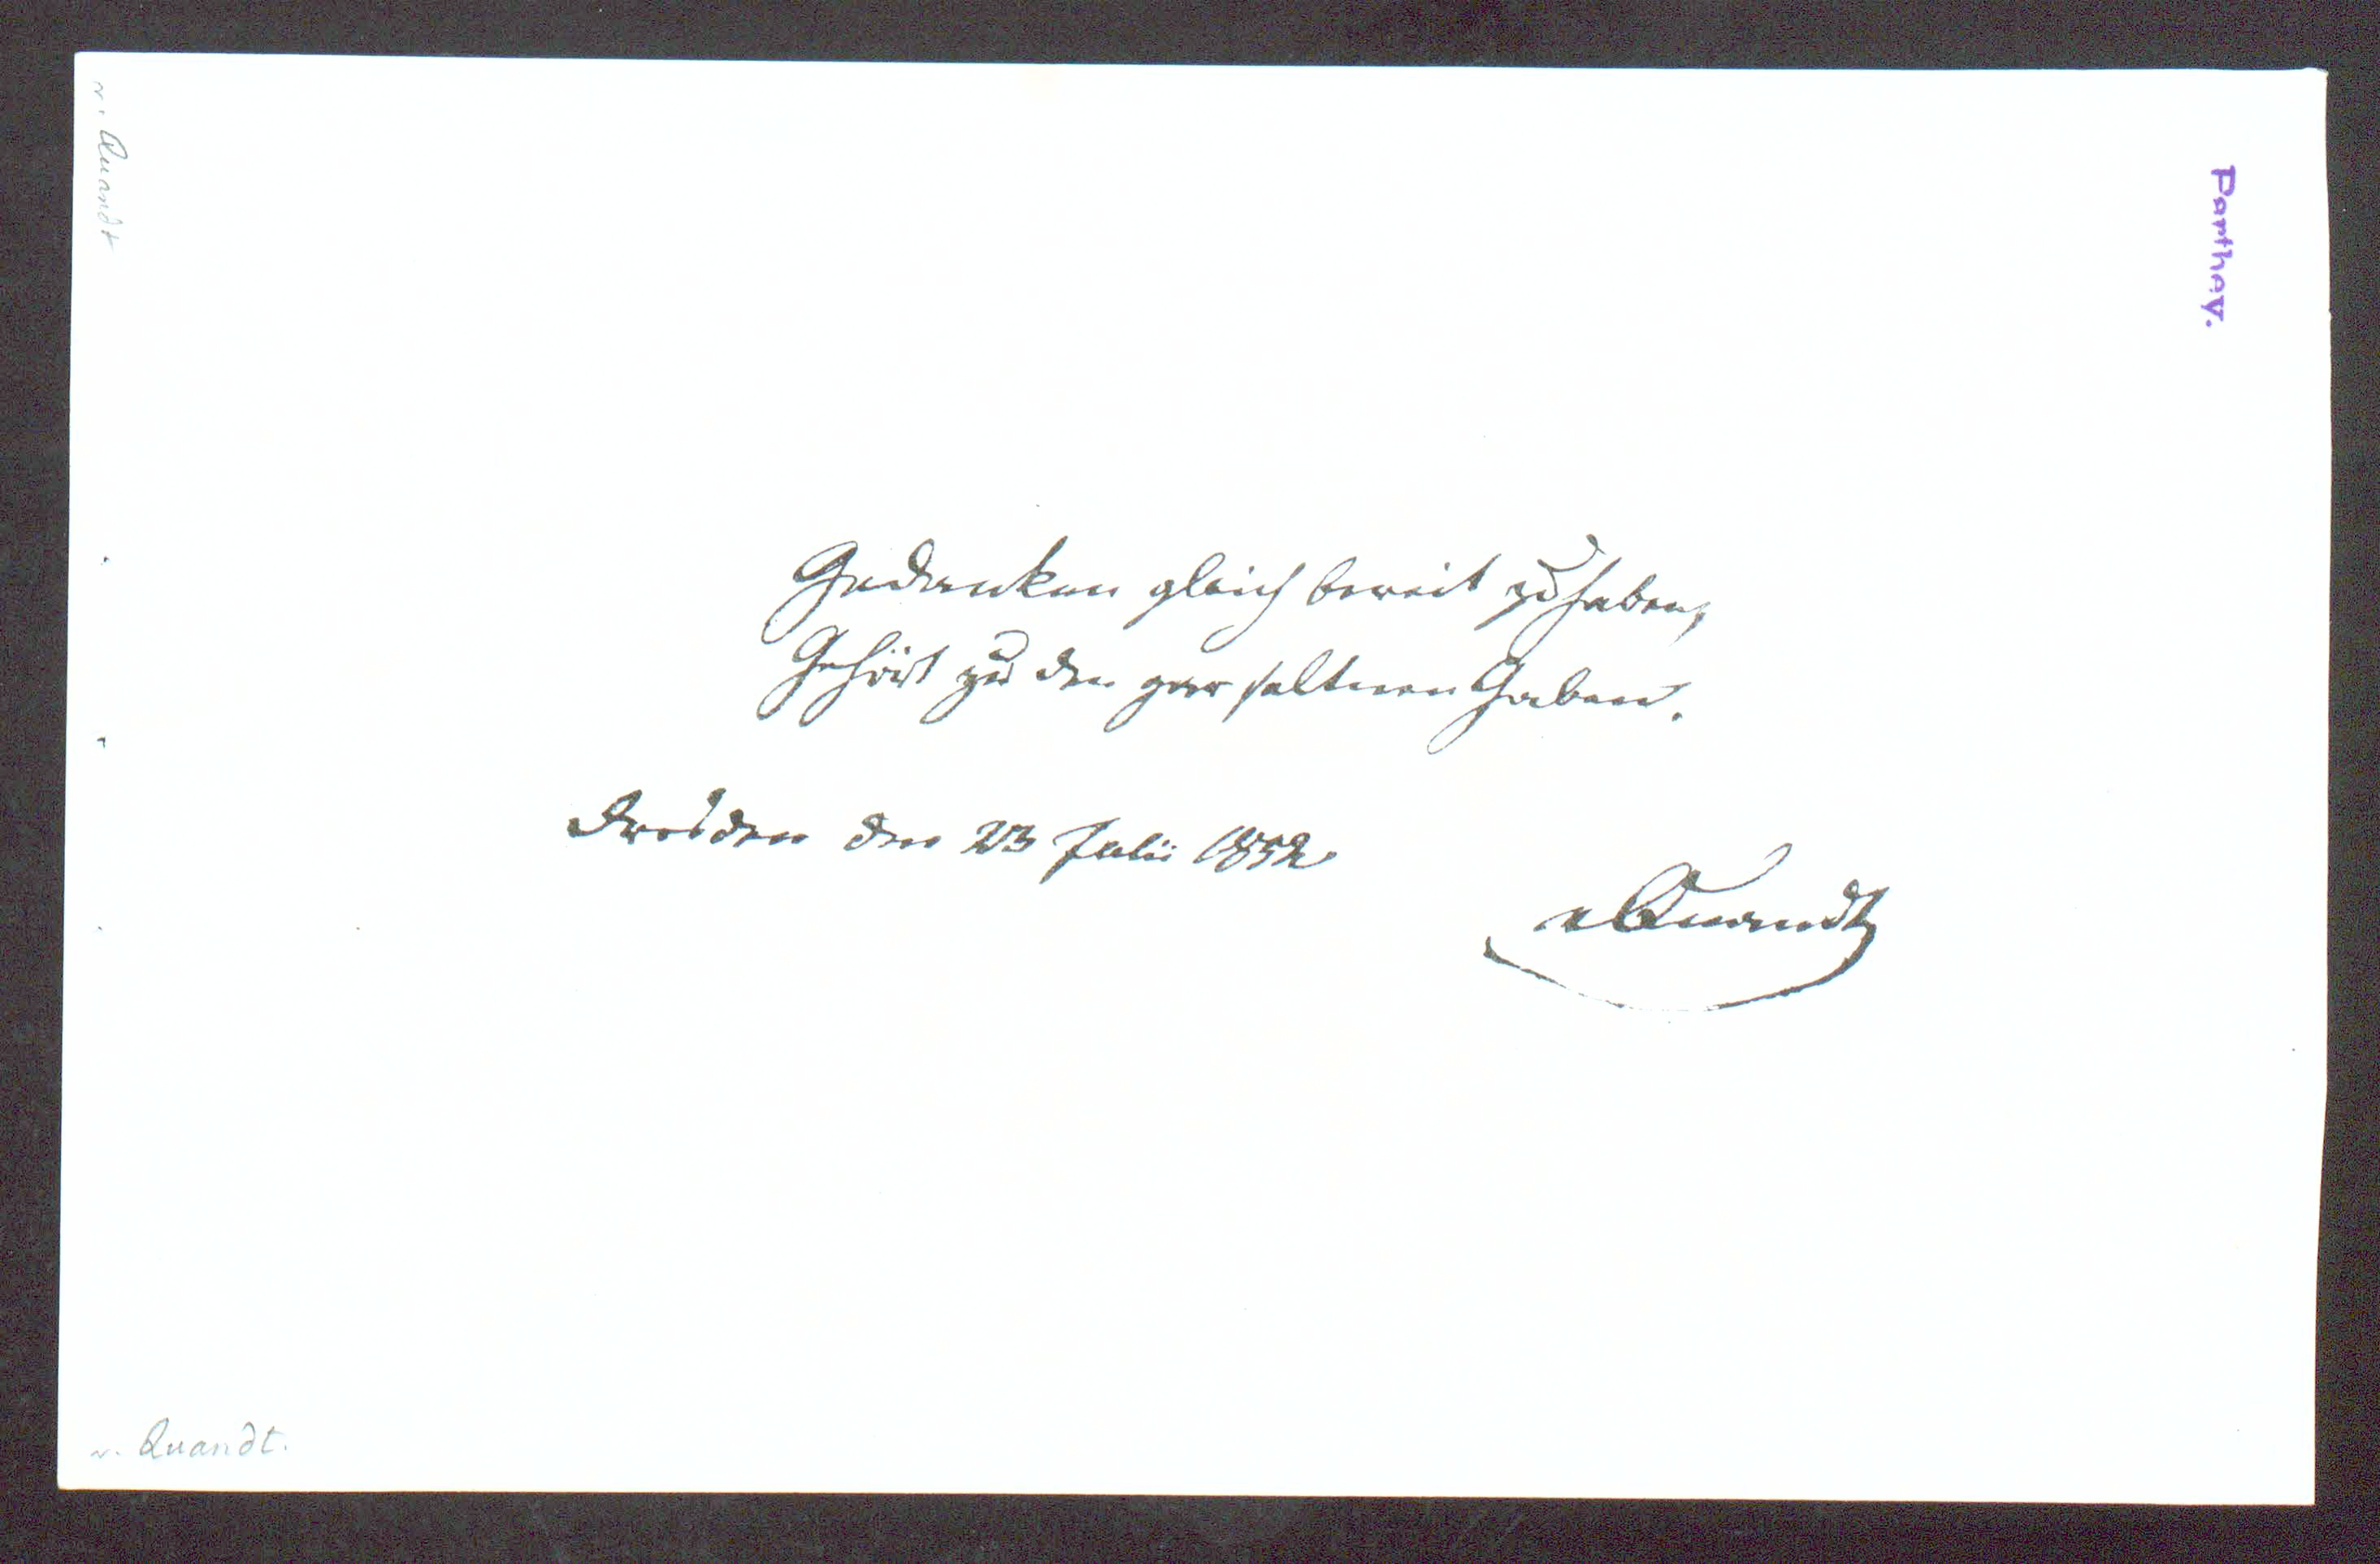 v. Quandt
Parthey.
Gedanken gleich bereit zu haben,
Gehört zu den gar seltnen Gaben.
Dresden den 23 Julii 1852
v Quandt
v. Quandt.